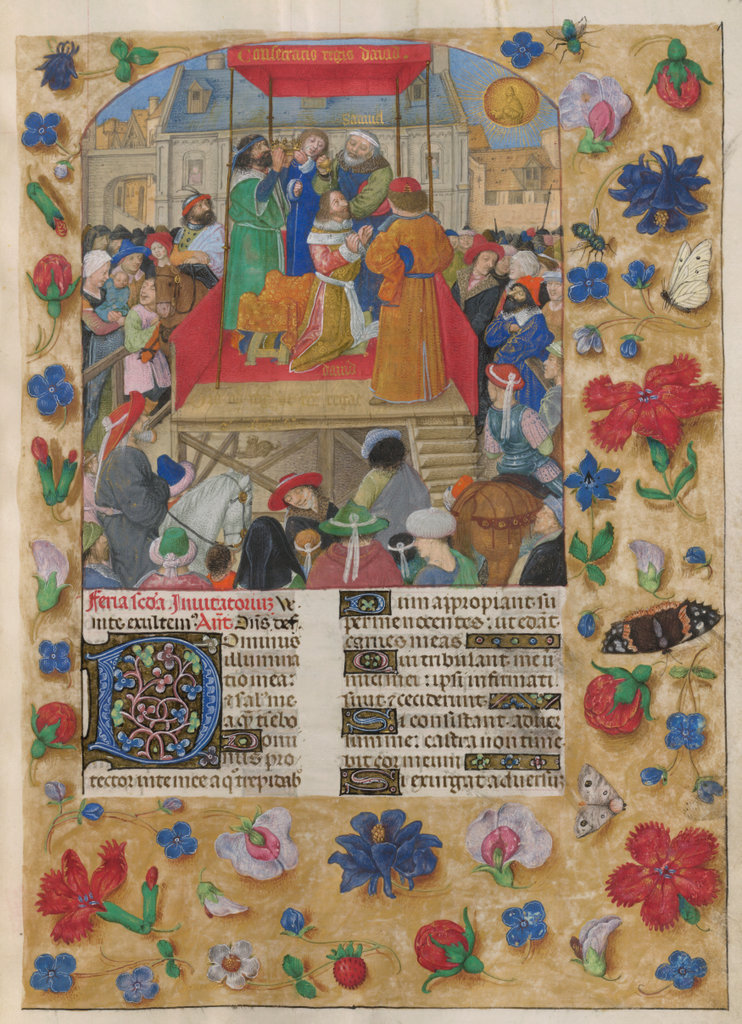 Consecratio regis david.
Samuel
david
Feria scda. Invitatorium Ve
nite exultem9 Añ. Dñs def.
Dominus
illumina
tio mea:
⁊ salme
a q̃ timebo
Domi
nus pro
tector vite mee a q̃ trepidab
Dum appropiant su
per me nocentes: ut edãt
carnes meas
Qui tribulant me i
nimici mei: ipsi infirmati
sunt ⁊ ceciderunt
Si consistant adver
sum me: castra non time
bit cor meum
Si exurgat adversus